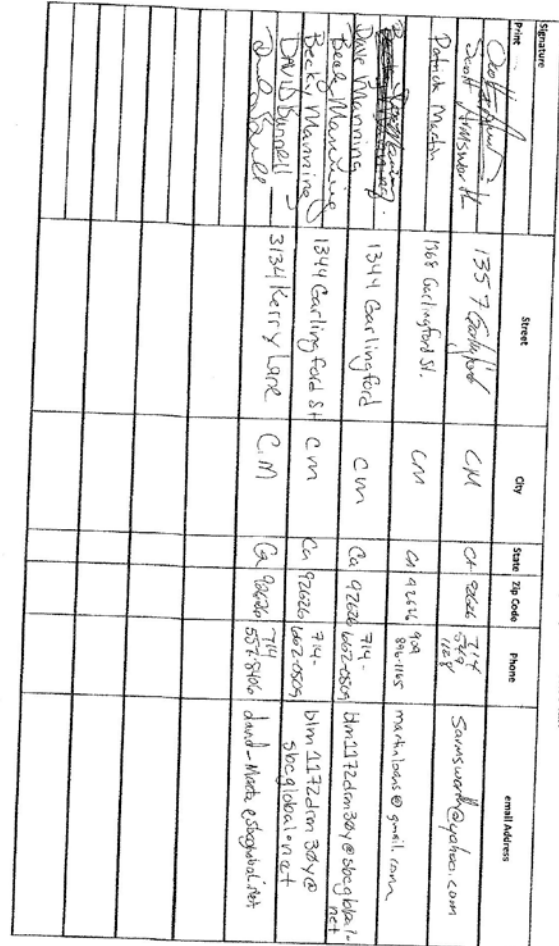 Signature
Print Street City State Zip Code Phone email Address
Scott Armsworth 1357 CM CA 92626 714 549 1128 Sarmsworth@yahoo.com
Patrick Martin 1368 Garlingford St. CM CA 92626 909 896-1165 martinloans@gmail.com
Dave Manning 1344 Garlingford CM Ca 92626 714- 662-0509 blm1172drm30y@sbcglobal.net
Becky Manning
Becky Manning 1344 Garlingford St CM Ca 92626 714- 662-0509 blm1172drm30y@ sbcglobal.net
DAVID Bunnell 3134 Kerry Lane C.M Ca 92626 714 557-8406